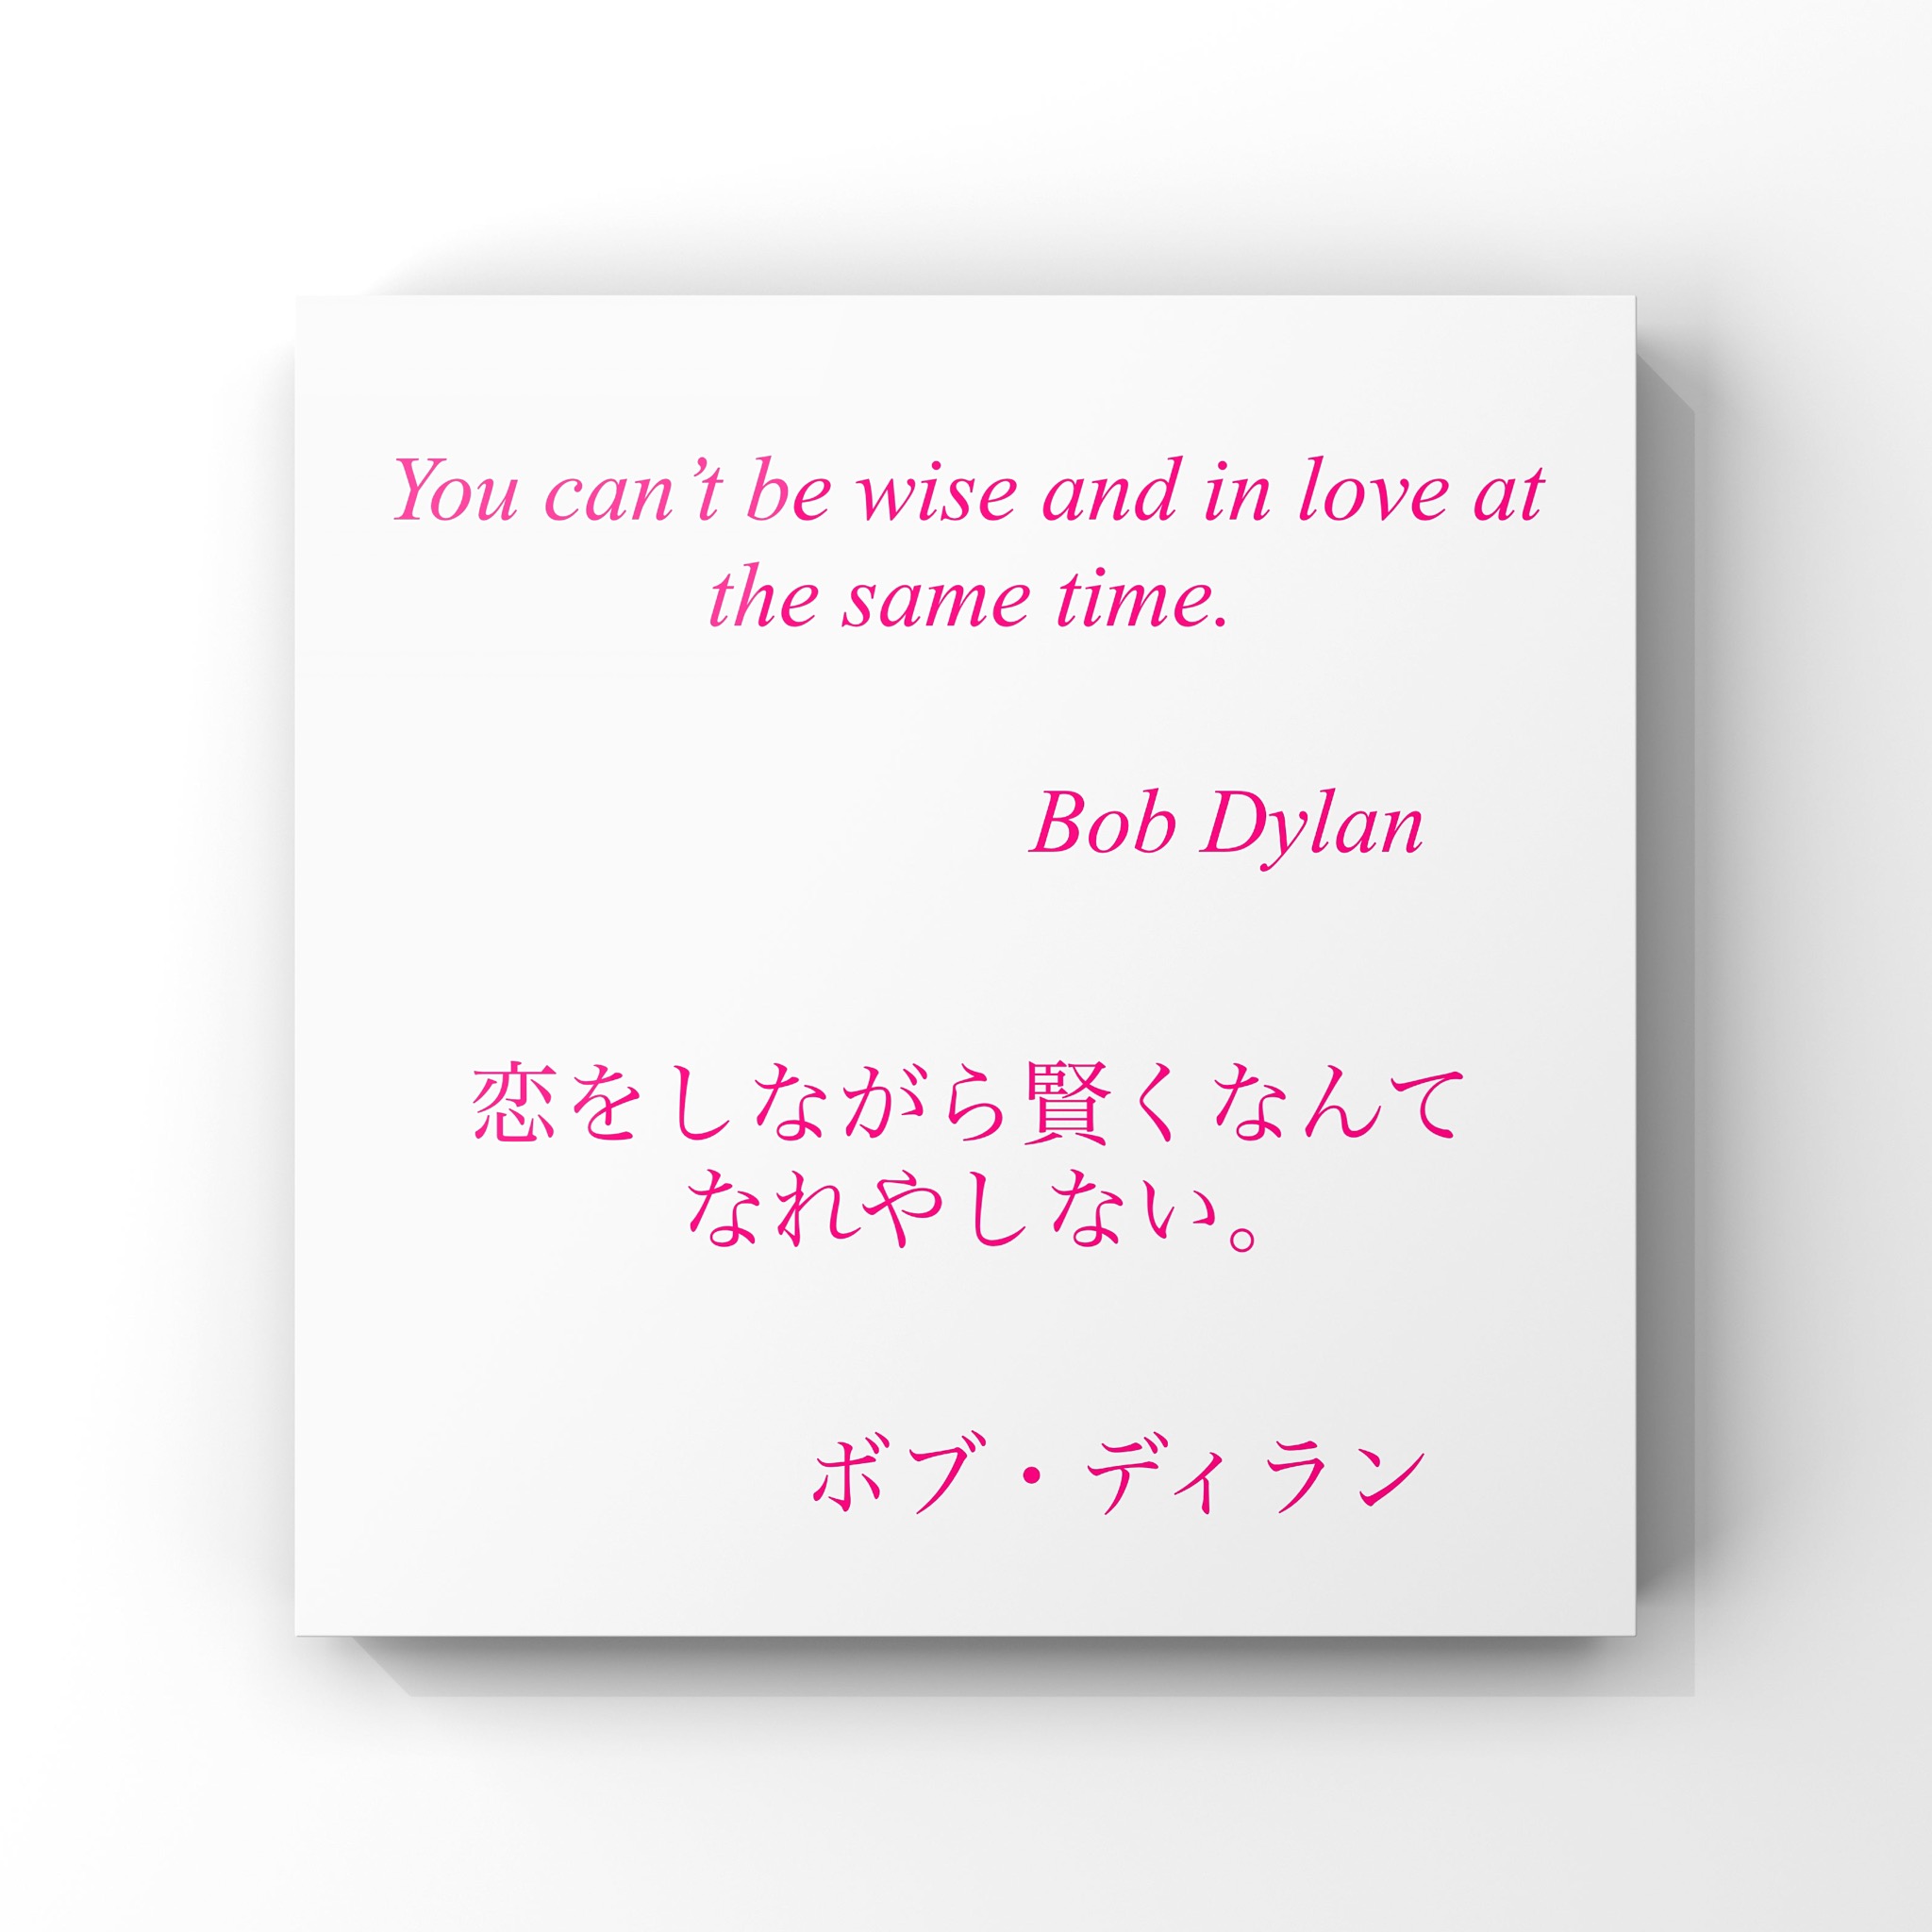 You can’t be wise and in love at
the same time.
Bob Dylan
恋をしながら賢くなんて
なれやしない。
ボブ・ディラン